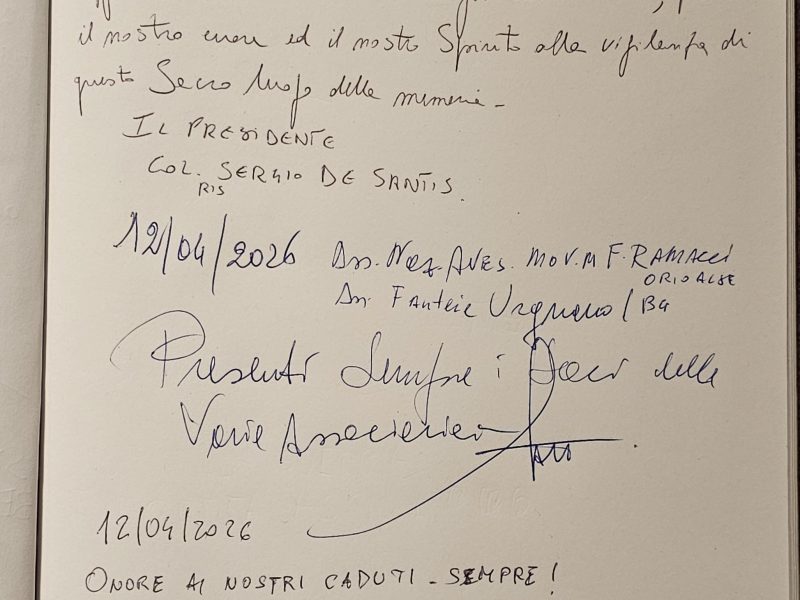 il nostro cuore ed il nostro Spirito alla vigilanza di
questo Sacro luogo delle memorie -
IL PRESIDENTE
COL. RIS SERGIO DE SANTIS.
12/04/2026 Ass. Naz. AVES. MOVM F. RAMACCI
ORIO AL SE
Ass. Fanteria Urgnano / BG
Presenti Sempre i Soci delle
Varie Associazioni
12/04/2026
ONORE AI NOSTRI CADUTI - SEMPRE!